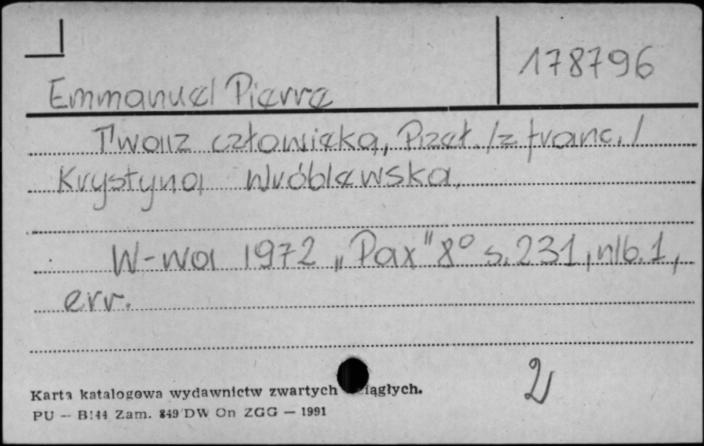 178796
Emmanuel Pierre
Twarz człowieka, Przeł. /z franc./
Krystyna Wróblewska.
W-wa 1972 „Pax" 8° s. 231, nlb. 1,
err.
2
Karta katalogowa wydawnictw zwartych
PU — B144 Zam. 849 DW On ZGG — 1991